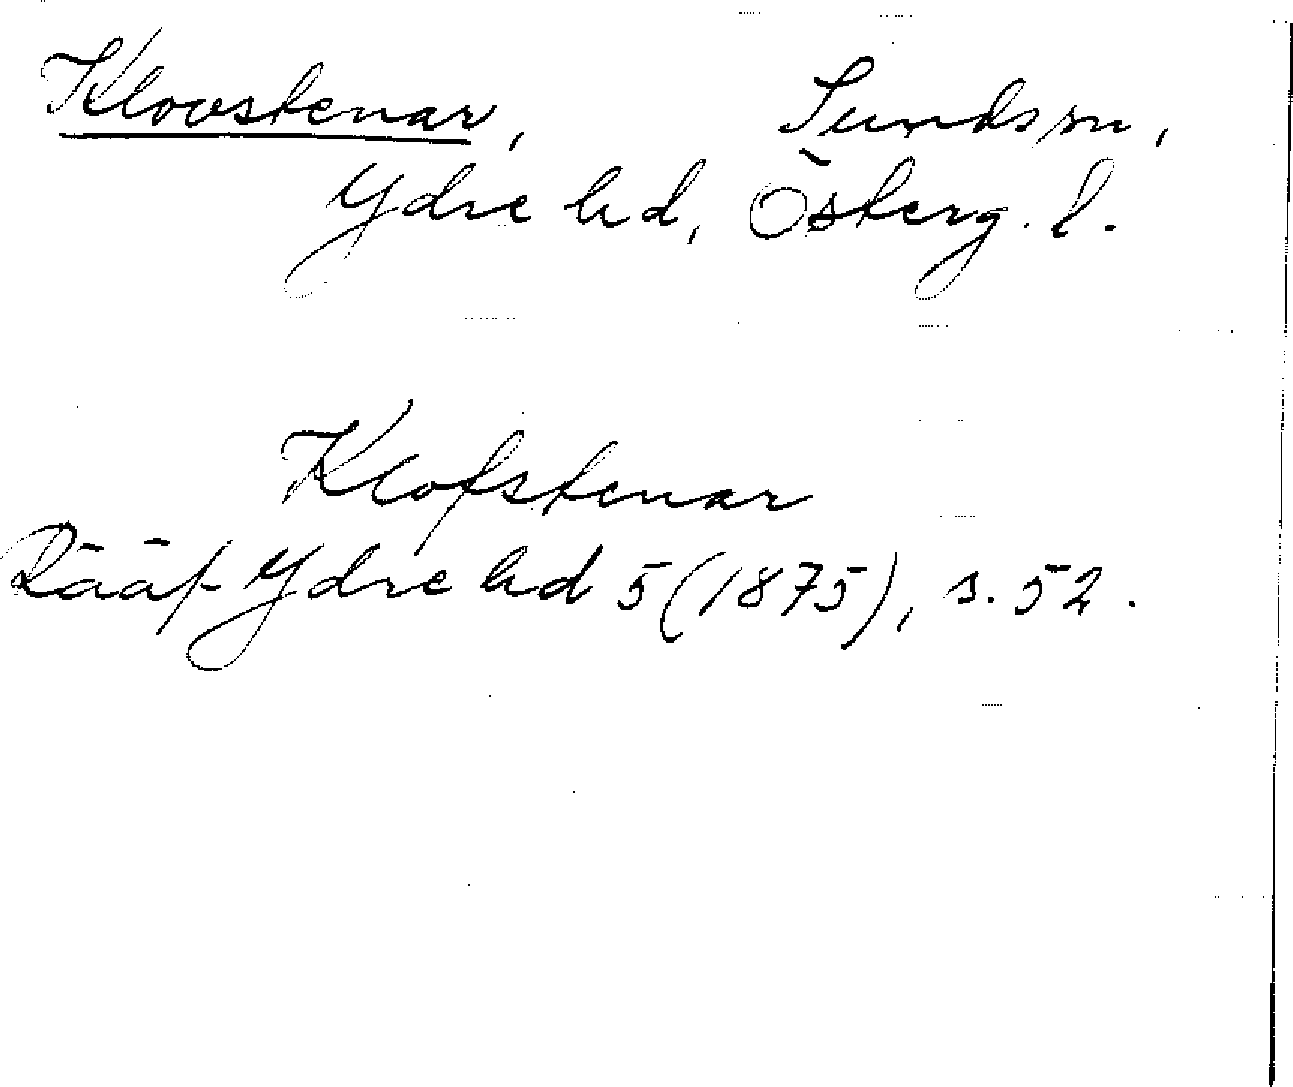 Klovstenar, Sunds sn,
Ydre hd, Österg. l.
Klofstenar
Rääf Ydre hd 5 (1875), s. 52.